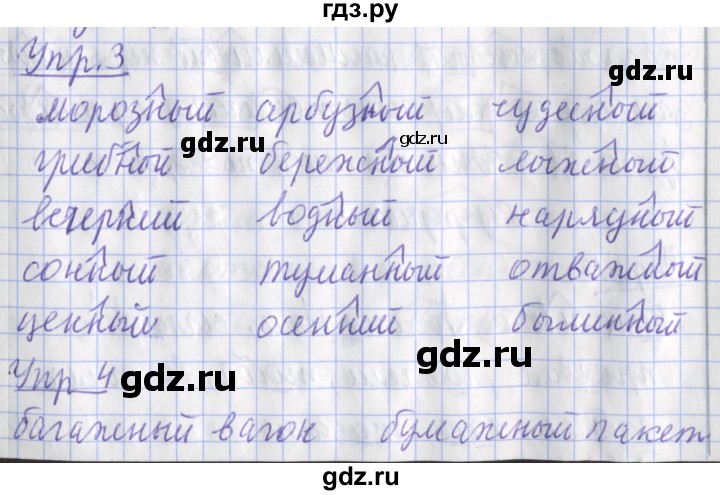 гдз.ру
Упр.3
морозный арбузный чудесный
gdz.ru gdz.ru gdz.ru
грибной бережный ложный
вечерний водный нарядный
gdz.ru gdz.ru
сонный туманный отважный
ценный осенний былинный
gdz.ru gdz.ru
Упр 4
gdz.ru gdz.ru
багажный вагон бумажный пакет
gdz.ru gdz.ru